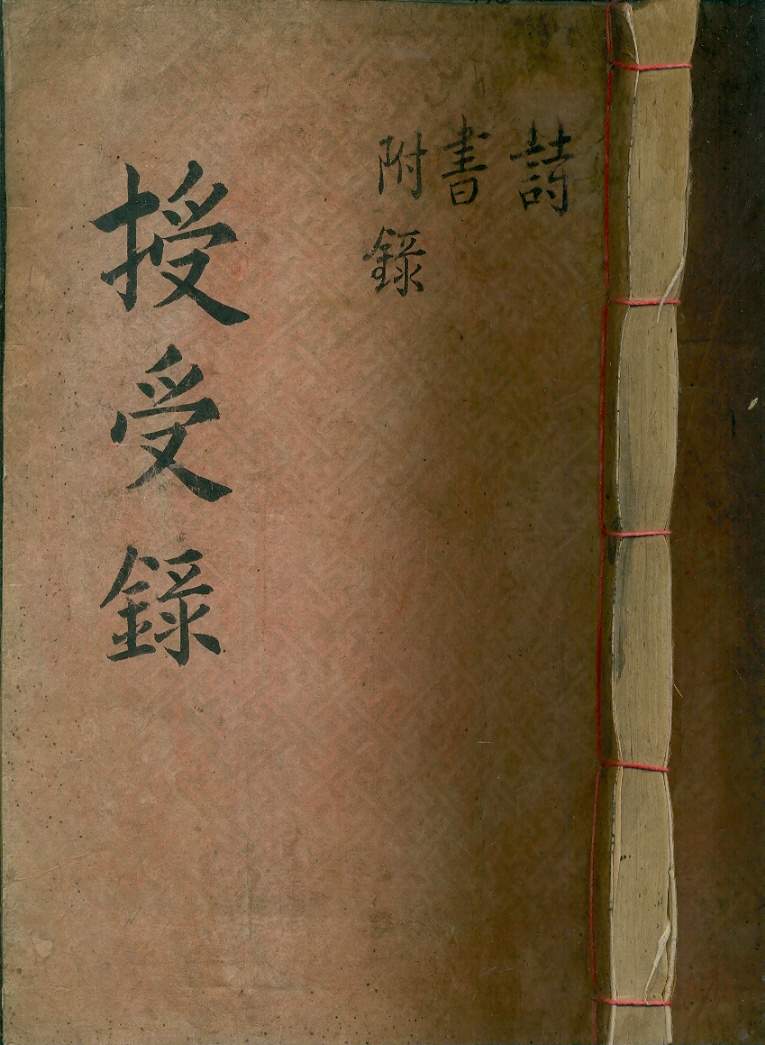 詩
書
附錄
授受錄